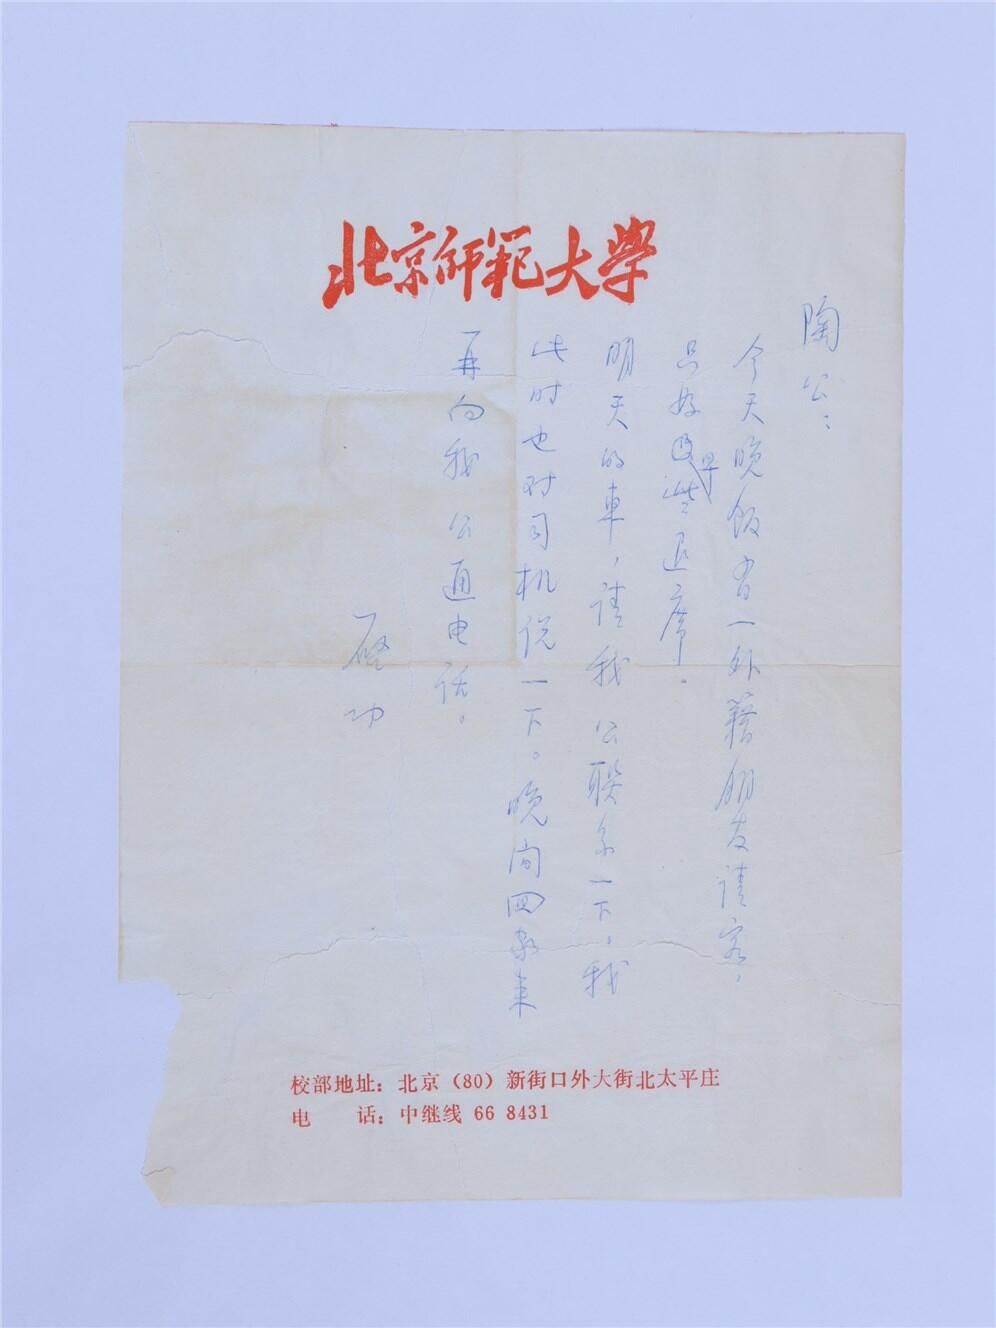 北京师范大学
陶公：
今天晚饭有一外籍朋友请客，
只好早些退席。
明天的車，请我 公联系一下，我
此时也对司机说一下。晚间回家来
再向我 公通电话。
启功
校部地址：北京（80）新街口外大街北太平庄
电　　话：中继线 66 8431